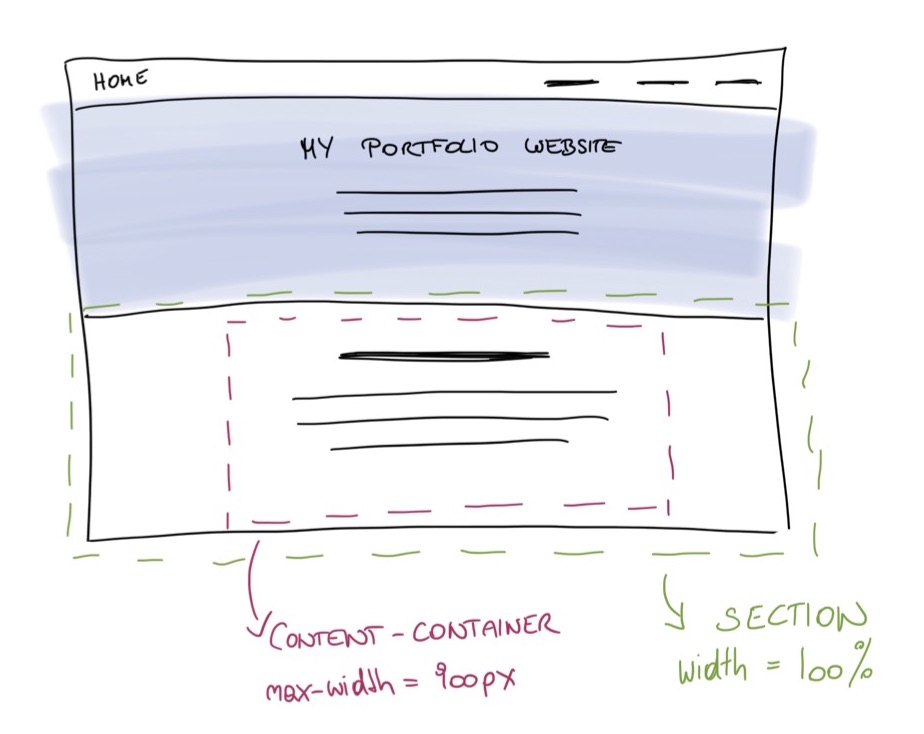 HOME
MY PORTFOLIO WEBSITE
CONTENT-CONTAINER
max-width = 900px
SECTION
width = 100%